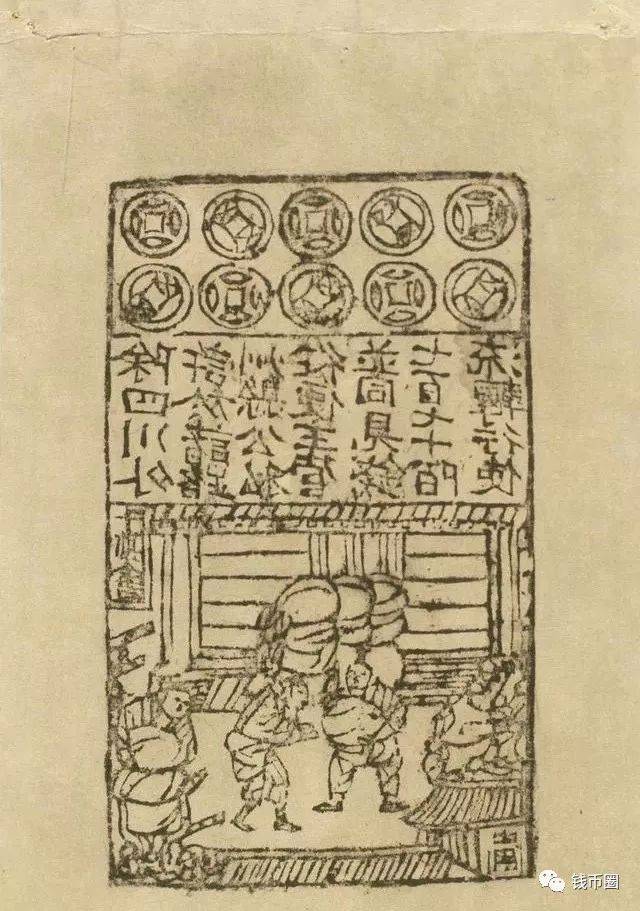 除四川外
許於諸路
州縣公私
從便主管
並同見錢
七百七十陌
流轉行使
钱币圈